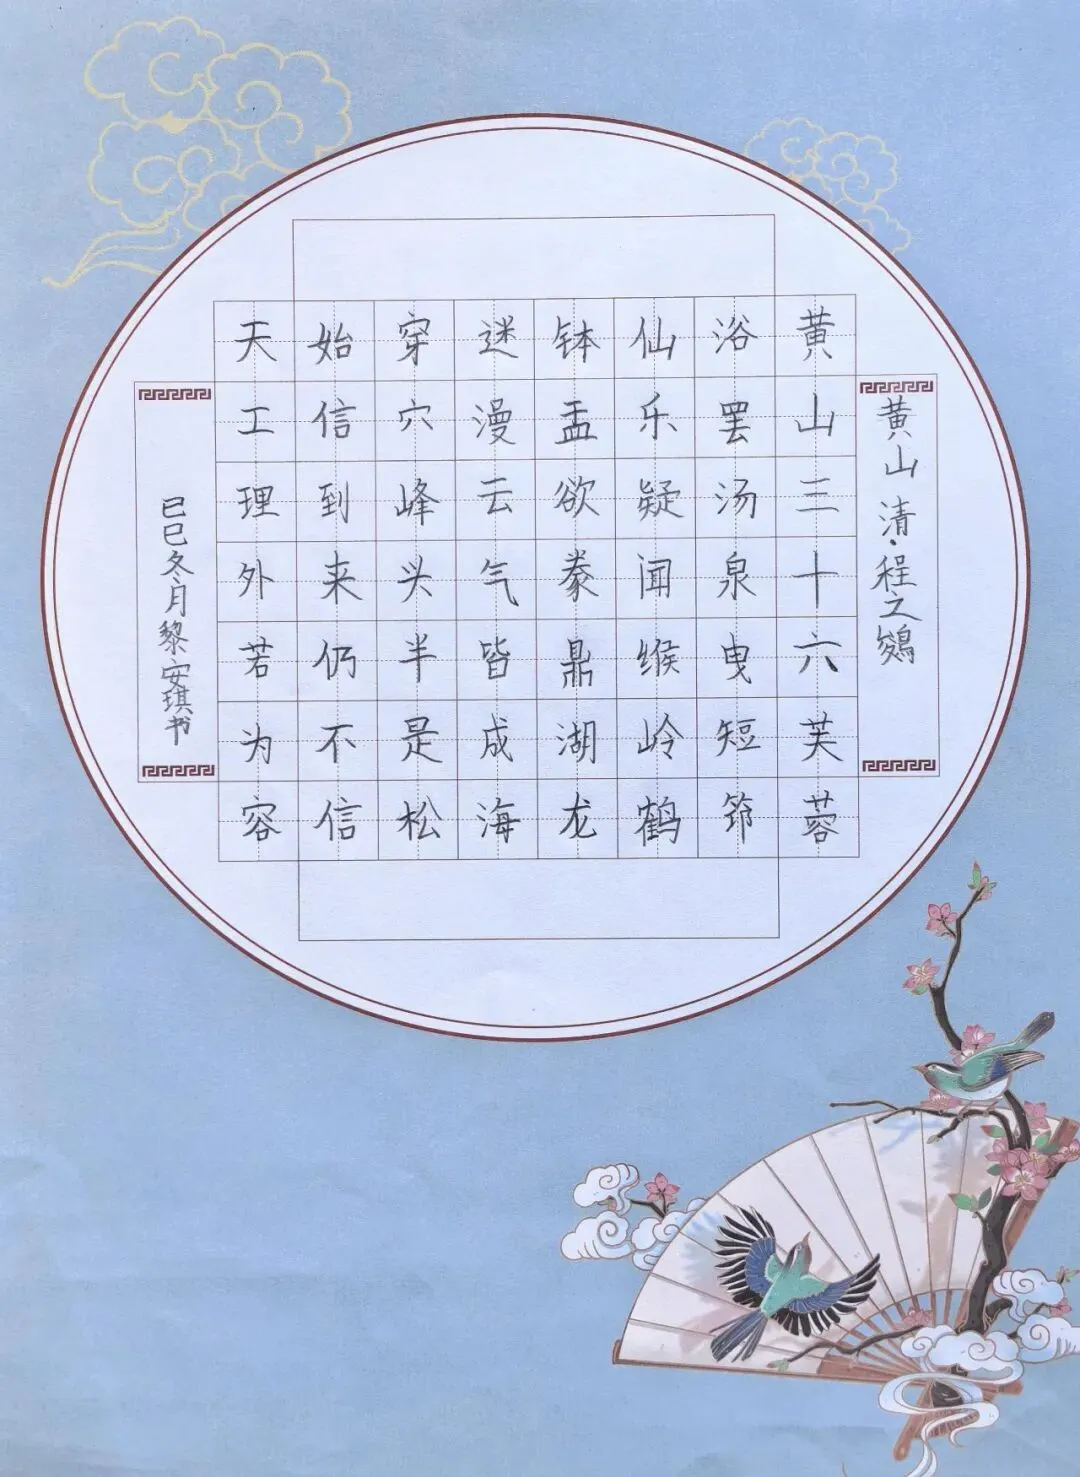 黄山 清·程之鵕
黄山三十六芙蓉
浴罢汤泉曳短筇
仙乐疑闻缑岭鹤
钵盂欲豢鼎湖龙
迷漫云气皆成海
穿穴峰头半是松
始信到来仍不信
天工理外若为容
已巳冬月黎安琪书